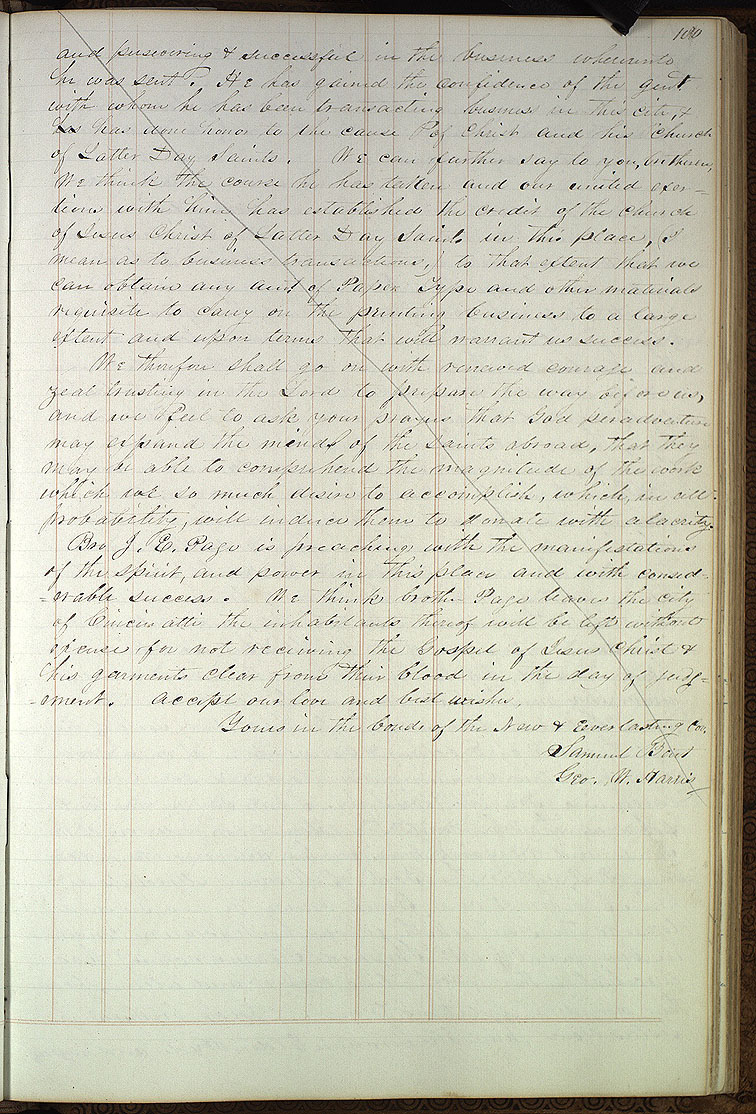 100
and persevering & successful in the business whereunto
he was sent. He has gained the confidence of the gent
with whom he has been transacting business in this city, &
has done honor to the cause of Christ and his Church
of Latter Day Saints. We can further say to you, brethren,
We think the course he has taken and our united exer-
tions with him has established the credit of the church
of Jesus Christ of Latter Day Saints in this place, I
mean as to business transactions, to that extent that we
can obtain any amt of Paper Type and other materials
requisite to carry on the printing business to a large
extent and upon terms that will warrant us success.
We therefore shall go on with renewed courage and
zeal trusting in the Lord to prepare the way before us,
and we feel to ask your prayers that God peradventure
may expand the minds of the Saints abroad, that they
may be able to comprehend the magnitude of the work
which we so much desire to accomplish, which, in all
probability, will induce them to donate with alacrity.
Bro J. E. Page is preaching with the manifestations
of the spirit, and power in this place and with consid-
-erable success. We think brother Page leaves the city
of Cincinatti the inhabitants thereof will be left without
excuse for not receiving the Gospel of Jesus Christ &
his garments clear from their blood in the day of judg-
-ement. Accept our love and best wishes.
Yours in the bonds of the New & Everlasting Cov.
Samuel Bent
Geo. W. Harris